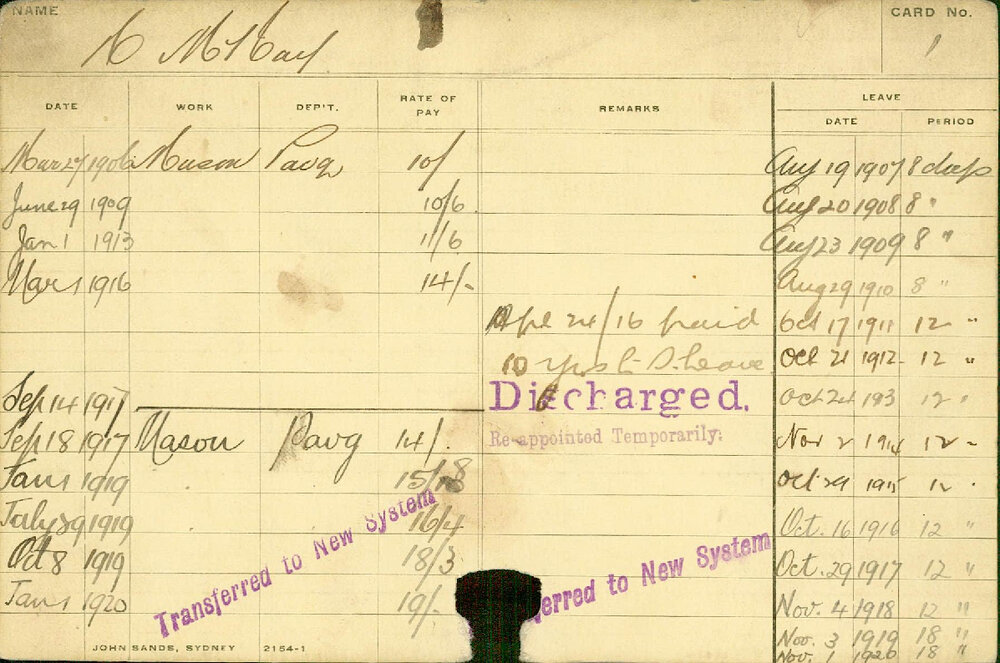 NAME CARD No.
A McKay 1
LEAVE
DATE WORK DEP'T. RATE OF PAY REMARKS DATE PERIOD
Mar 27 1906 Mason Pavg 10/ Aug 19 1907 8 days
June 29 1909 10/6 Aug 20 1908 8 "
Jan 1 1913 11/6 Aug 23 1909 8 "
Mar 1 1916 14/- Aug 29 1910 8 "
Apl 24/16 paid Oct 17 1911 12 "
10 yrs L.S. leave Oct 21 1912 12 "
Sep 14 1917 Discharged. Oct 24 193 12 "
Sep 18 1917 Mason Pavg 14/. Re-appointed Temporarily. Nov 2 1914 12 "
Jan 1 1919 15/ 8 Oct 29 1915 12 "
July 29 1919 16/4 Oct. 16 1916 12 "
Oct 8 1919 18/3 Oct. 29 1917 12 "
Jan 1 1920 19/- Nov. 4 1918 12 "
Nov. 3 1919 18 "
Nov. 1 1920 18 "
Transferred to New System
erred to New System
JOHN SANDS, SYDNEY 2154-1